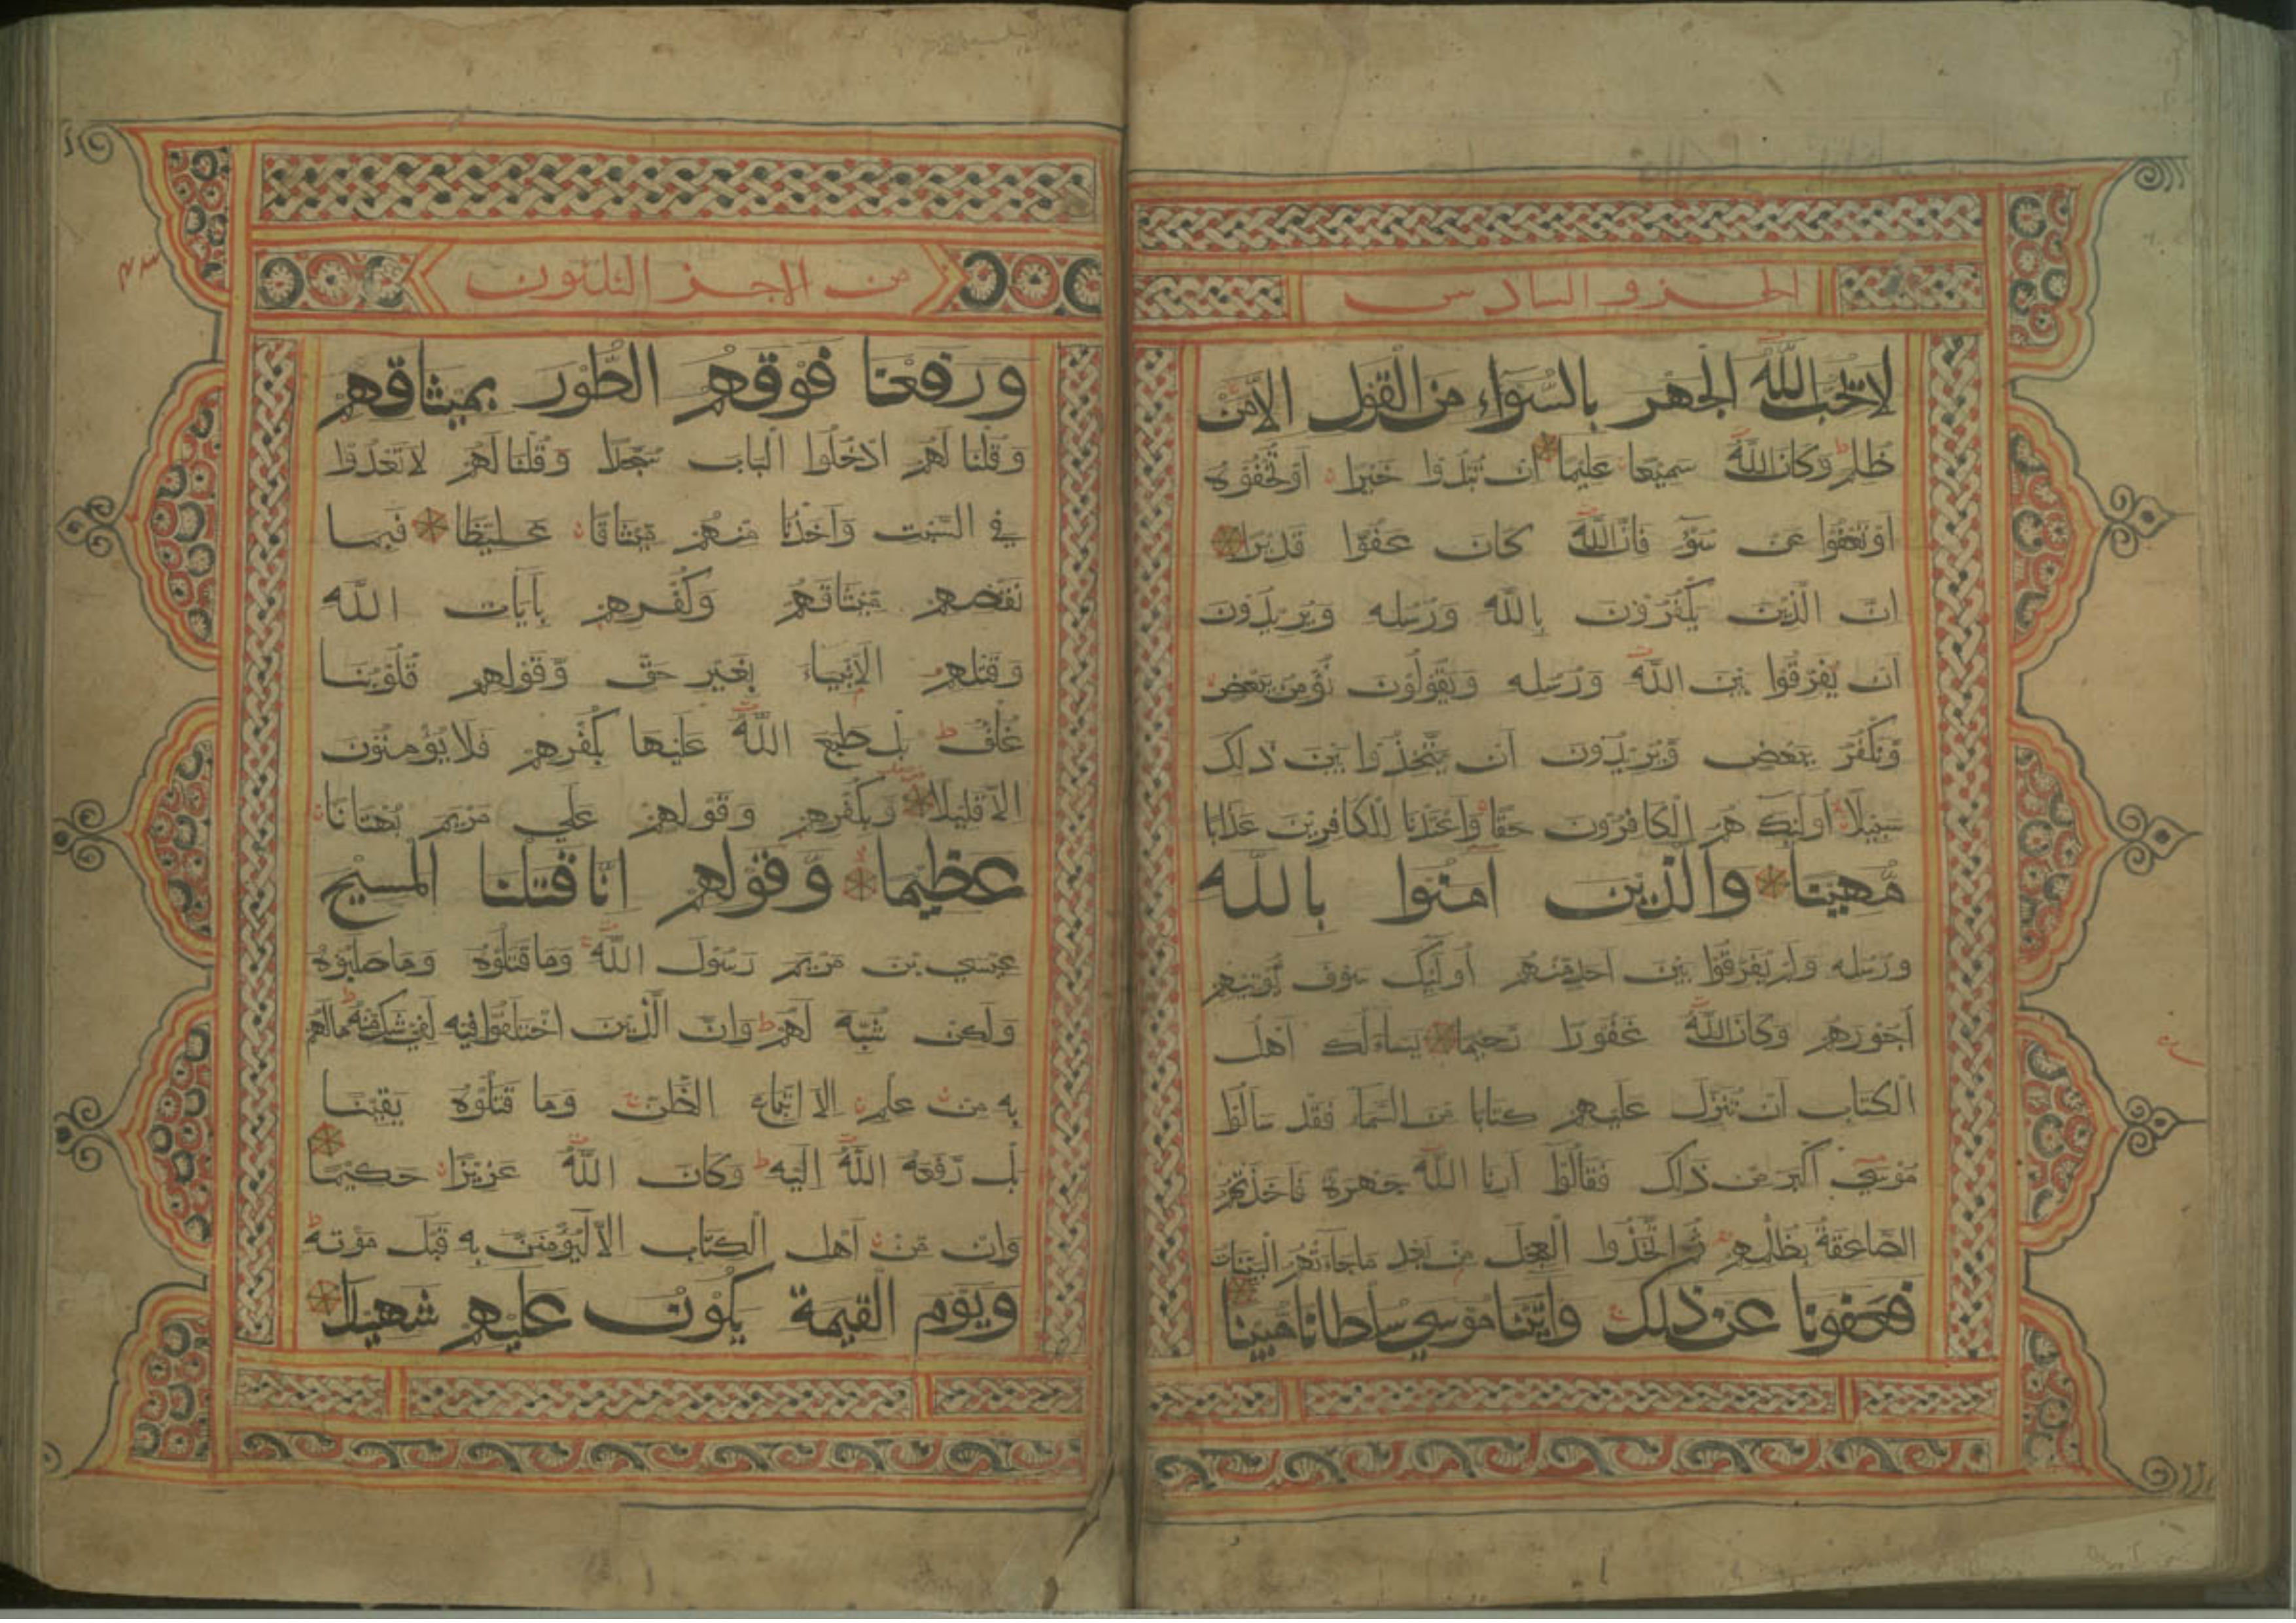 الجزو السادس
لا يحب الله الجهر بالسواء من القول الا من
ظلم وكان الله سميعا عليما ان تبدوا خيرا او تخفوه
او تعفوا عن سوء فان الله كان عفوا قديرا
ان الذين يكفرون بالله ورسله ويريدون
ان يفرقوا بين الله ورسله ويقولون نؤمن ببعض
ونكفر ببعض ويريدون ان يتخذوا بين ذلك
سبيلا اولئك هم الكافرون حقا واعتدنا للكافرين عذابا
مهينا والذين امنوا بالله
ورسله ولم يفرقوا بين احد منهم اولئك سوف يؤتيهم
اجورهم وكان الله غفورا رحيما يساءلك اهل
الكتاب ان تنزل عليهم كتابا من السماء فقد سالوا
موسي اكبر من ذلك فقالوا ارنا الله جهرة فاخذتهم
الصاعقة بظلمهم ثم اتخذوا العجل من بعد ما جاءتهم البينات
فعفونا عن ذلك واتينا موسي سلطانا مبينا
من الاجز الثلثون
ورفعنا فوقهم الطور بميثاقهم
وقلنا لهم ادخلوا الباب سجدا وقلنا لهم لا تعدوا
في السبت واخذنا منهم ميثاقا غليظا فبما
نقضهم ميثاقهم وكفرهم بايات الله
وقتلهم الانبياء بغير حق وقولهم قلوبنا
غلف بل طبع الله عليها بكفرهم فلا يؤمنون
الا قليلا وبكفرهم وقولهم علي مريم بهتانا
عظيما وقولهم انا قتلنا المسيح
عيسي بن مريم رسول الله وما قتلوه وما صلبوه
ولكن شبه لهم وان الذين اختلفوا فيه لفي شك منه ما لهم
به من علم الا اتباع الظن وما قتلوه يقينا
بل رفعه الله اليه وكان الله عزيزا حكيما
وان من اهل الكتاب الا ليؤمنن به قبل موته
ويوم القيمة يكون عليهم شهيدا